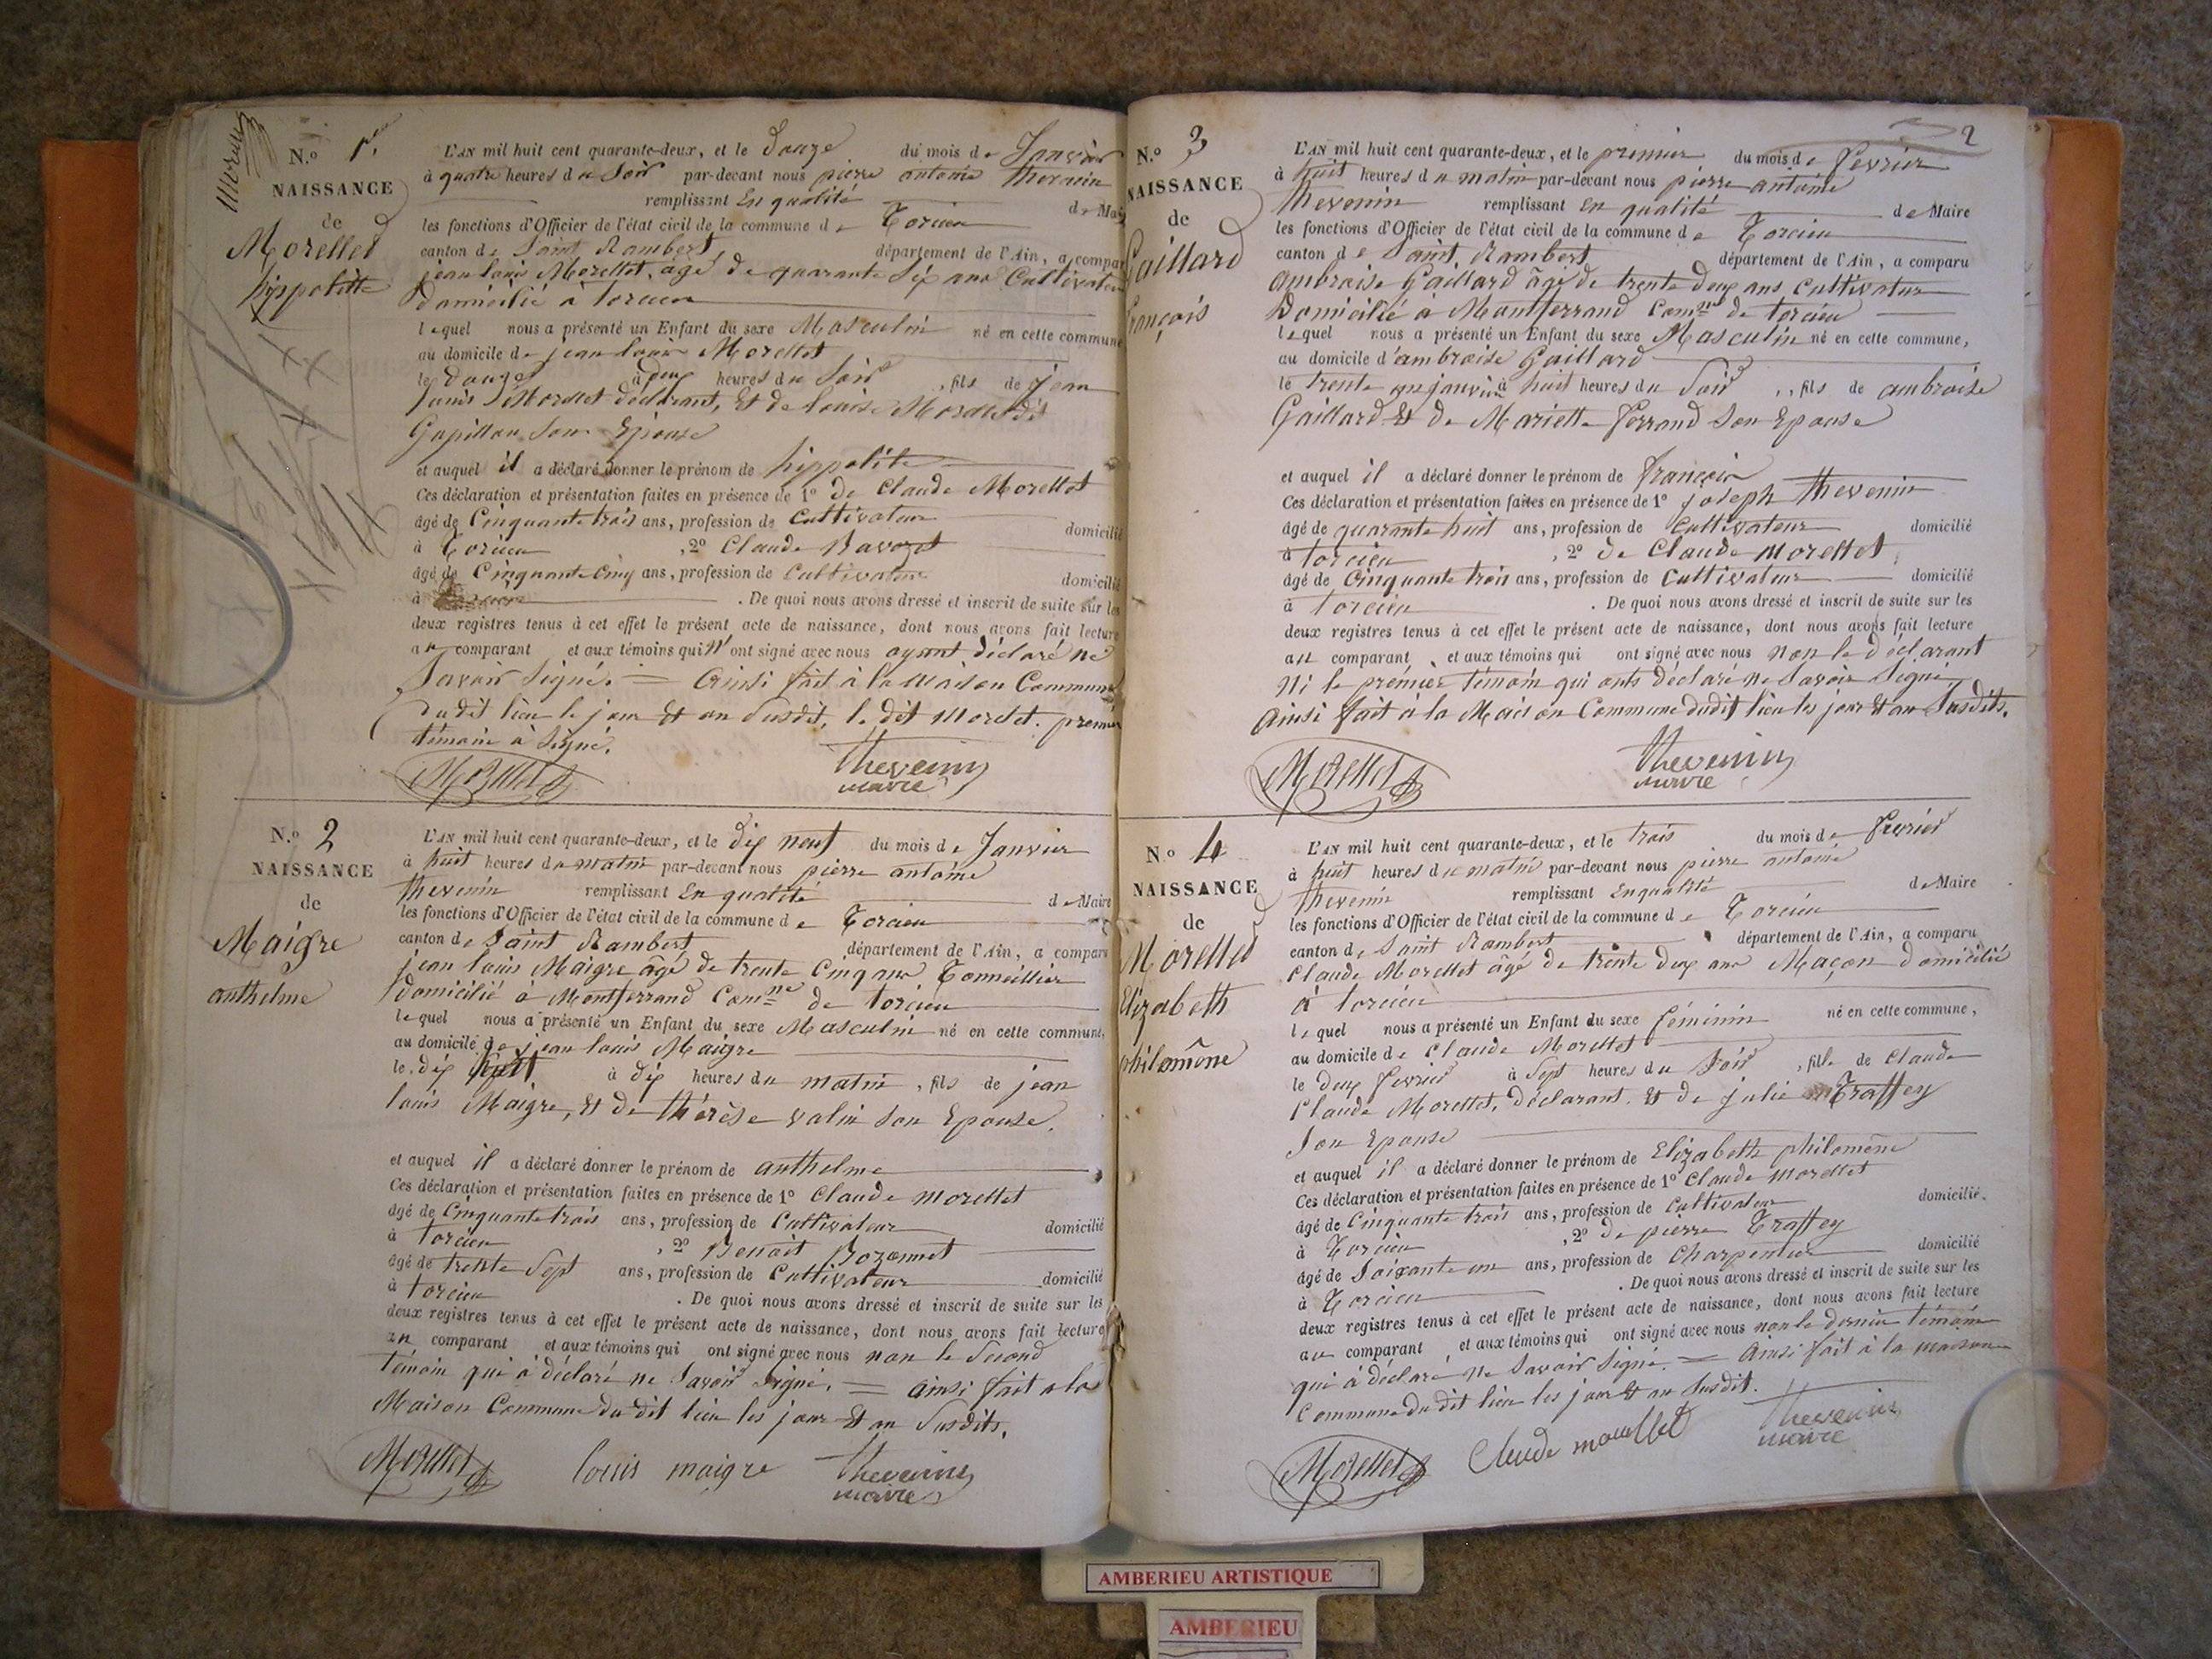 N.º 1er
NAISSANCE
de
Morellet
hippolitte
L'AN mil huit cent quarante-deux, et le douze du mois de Janvier
à quatre heures du Soir par-devant nous pierre antoine thevenin
remplissant En qualité de Mai
les fonctions d'Officier de l'état civil de la commune de Torcieu
canton de Saint Rambert département de l'Ain, a compar
jean louis Morellet, âgé de quarante Six ans Cultivateur
Domicilié à torcieu
lequel nous a présenté un Enfant du sexe Masculin né en cette commune
au domicile de jean louis Morellet
le douze à deux heures du Soir, fils de jean
louis Morellet déclarant, Et de louise Morellet dit
Gapillon Son Epouse
et auquel il a déclaré donner le prénom de hippolite
Ces déclaration et présentation faites en présence de 1º de Claude Morellet
âgé de Cinquante trois ans, profession de Cultivateur domicilié
à Torcieu, 2º Claude Ravozet
âgé de Cinquante Cinq ans, profession de Cultivateur domicilié
à . De quoi nous avons dressé et inscrit de suite sur les
deux registres tenus à cet effet le présent acte de naissance, dont nous avons fait lecture
au comparant et aux témoins qui n'ont signé avec nous ayant déclaré ne
Savoir Signé. = Ainsi fait à la Maison Commune
dudit lieu le jour Et an Susdit, le dit Morellet. premier
témoin à Signé.
Morellet thevenin
maire
N.º 2
NAISSANCE
de
Maigre
anthelme
L'AN mil huit cent quarante-deux, et le dix neuf du mois de Janvier
à huit heures du matin par-devant nous pierre antoine
thevenin remplissant En qualité de Maire
les fonctions d'Officier de l'état civil de la commune de Torcieu
canton de Saint Rambert département de l'Ain, a comparu
jean louis Maigre âgé de trente Cinq ans Tonnellier
domicilié à Montferrand Comne de torcieu
lequel nous a présenté un Enfant du sexe Masculin né en cette commune,
au domicile de jean louis Maigre
le dix huit à dix heures du matin, fils de jean
louis Maigre, Et de thérèse valin Son Epouse.
et auquel il a déclaré donner le prénom de anthelme
Ces déclaration et présentation faites en présence de 1º Claude morellet
âgé de Cinquante trois ans, profession de Cultivateur domicilié
à torcieu, 2º Benoît Bozonnet
âgé de trente Sept ans, profession de Cultivateur domicilié
à torcieu . De quoi nous avons dressé et inscrit de suite sur les
deux registres tenus à cet effet le présent acte de naissance, dont nous avons fait lecture
au comparant et aux témoins qui ont signé avec nous non le Second
témoin qui à déclaré ne Savoir Signé. = ainsi fait a la
Maison Commune du dit lieu les jour Et an Susdits.
Morellet louis maigre thevenin
maire
2
N.º 3
NAISSANCE
de
Gaillard
françois
L'AN mil huit cent quarante-deux, et le premier du mois de fevrier
à huit heures du matin par-devant nous pierre antoine
thevenin remplissant En qualité de Maire
les fonctions d'Officier de l'état civil de la commune de Torcieu
canton de Saint Rambert département de l'Ain, a comparu
ambroise Gaillard âgé de trente deux ans cultivateur
Domicilié à Montferrand Comne de torcieu
lequel nous a présenté un Enfant du sexe Masculin né en cette commune,
au domicile d'ambroise Gaillard
le trente un janvier à huit heures du Soir, fils de ambroise
Gaillard Et de Mariette ferrand Son Epouse
et auquel il a déclaré donner le prénom de françois
Ces déclaration et présentation faites en présence de 1º joseph thevenin
âgé de quarante huit ans, profession de Cultivateur domicilié
à torcieu, 2º de Claude morellet
âgé de Cinquante trois ans, profession de Cultivateur domicilié
à torcieu . De quoi nous avons dressé et inscrit de suite sur les
deux registres tenus à cet effet le présent acte de naissance, dont nous avons fait lecture
au comparant et aux témoins qui ont signé avec nous non le déclarant
Ni le premier témoin qui onts déclaré ne Savoir Signé
ainsi fait à la Maison Commune dudit lieu les jour Et an Susdits.
Morellet thevenin
maire
N.º 4
NAISSANCE
de
Morellet
Elizabeth
philomône
L'AN mil huit cent quarante-deux, et le trois du mois de fevrier
à huit heures du matin par-devant nous pierre antoine
thevenin remplissant En qualité de Maire
les fonctions d'Officier de l'état civil de la commune de Torcieu
canton de Saint Rambert département de l'Ain, a comparu
Claude Morellet âgé de trente deux ans Maçon domicilié
à torcieu
lequel nous a présenté un Enfant du sexe féminin né en cette commune,
au domicile de Claude Morellet
le deux fevrier à Sept heures du Soir, fille de Claude
Claude Morellet, déclarant. Et de julie Traffey
Son Epouse
et auquel il a déclaré donner le prénom de Elizabeth philomène
Ces déclaration et présentation faites en présence de 1º Claude morellet
âgé de Cinquante trois ans, profession de Cultivateur domicilié
à Torcieu, 2º de pierre Traffey
âgé de Soixante un ans, profession de Charpentier domicilié
à Torcieu . De quoi nous avons dressé et inscrit de suite sur les
deux registres tenus à cet effet le présent acte de naissance, dont nous avons fait lecture
au comparant et aux témoins qui ont signé avec nous non le dernier témoin
qui à déclaré ne Savoir Signé. = Ainsi fait à la maison
Commune du dit lieu les jour Et an Susdit.
Morellet Claude morellet thevenin
maire
AMBERIEU ARTISTIQUE
AMBERIEU